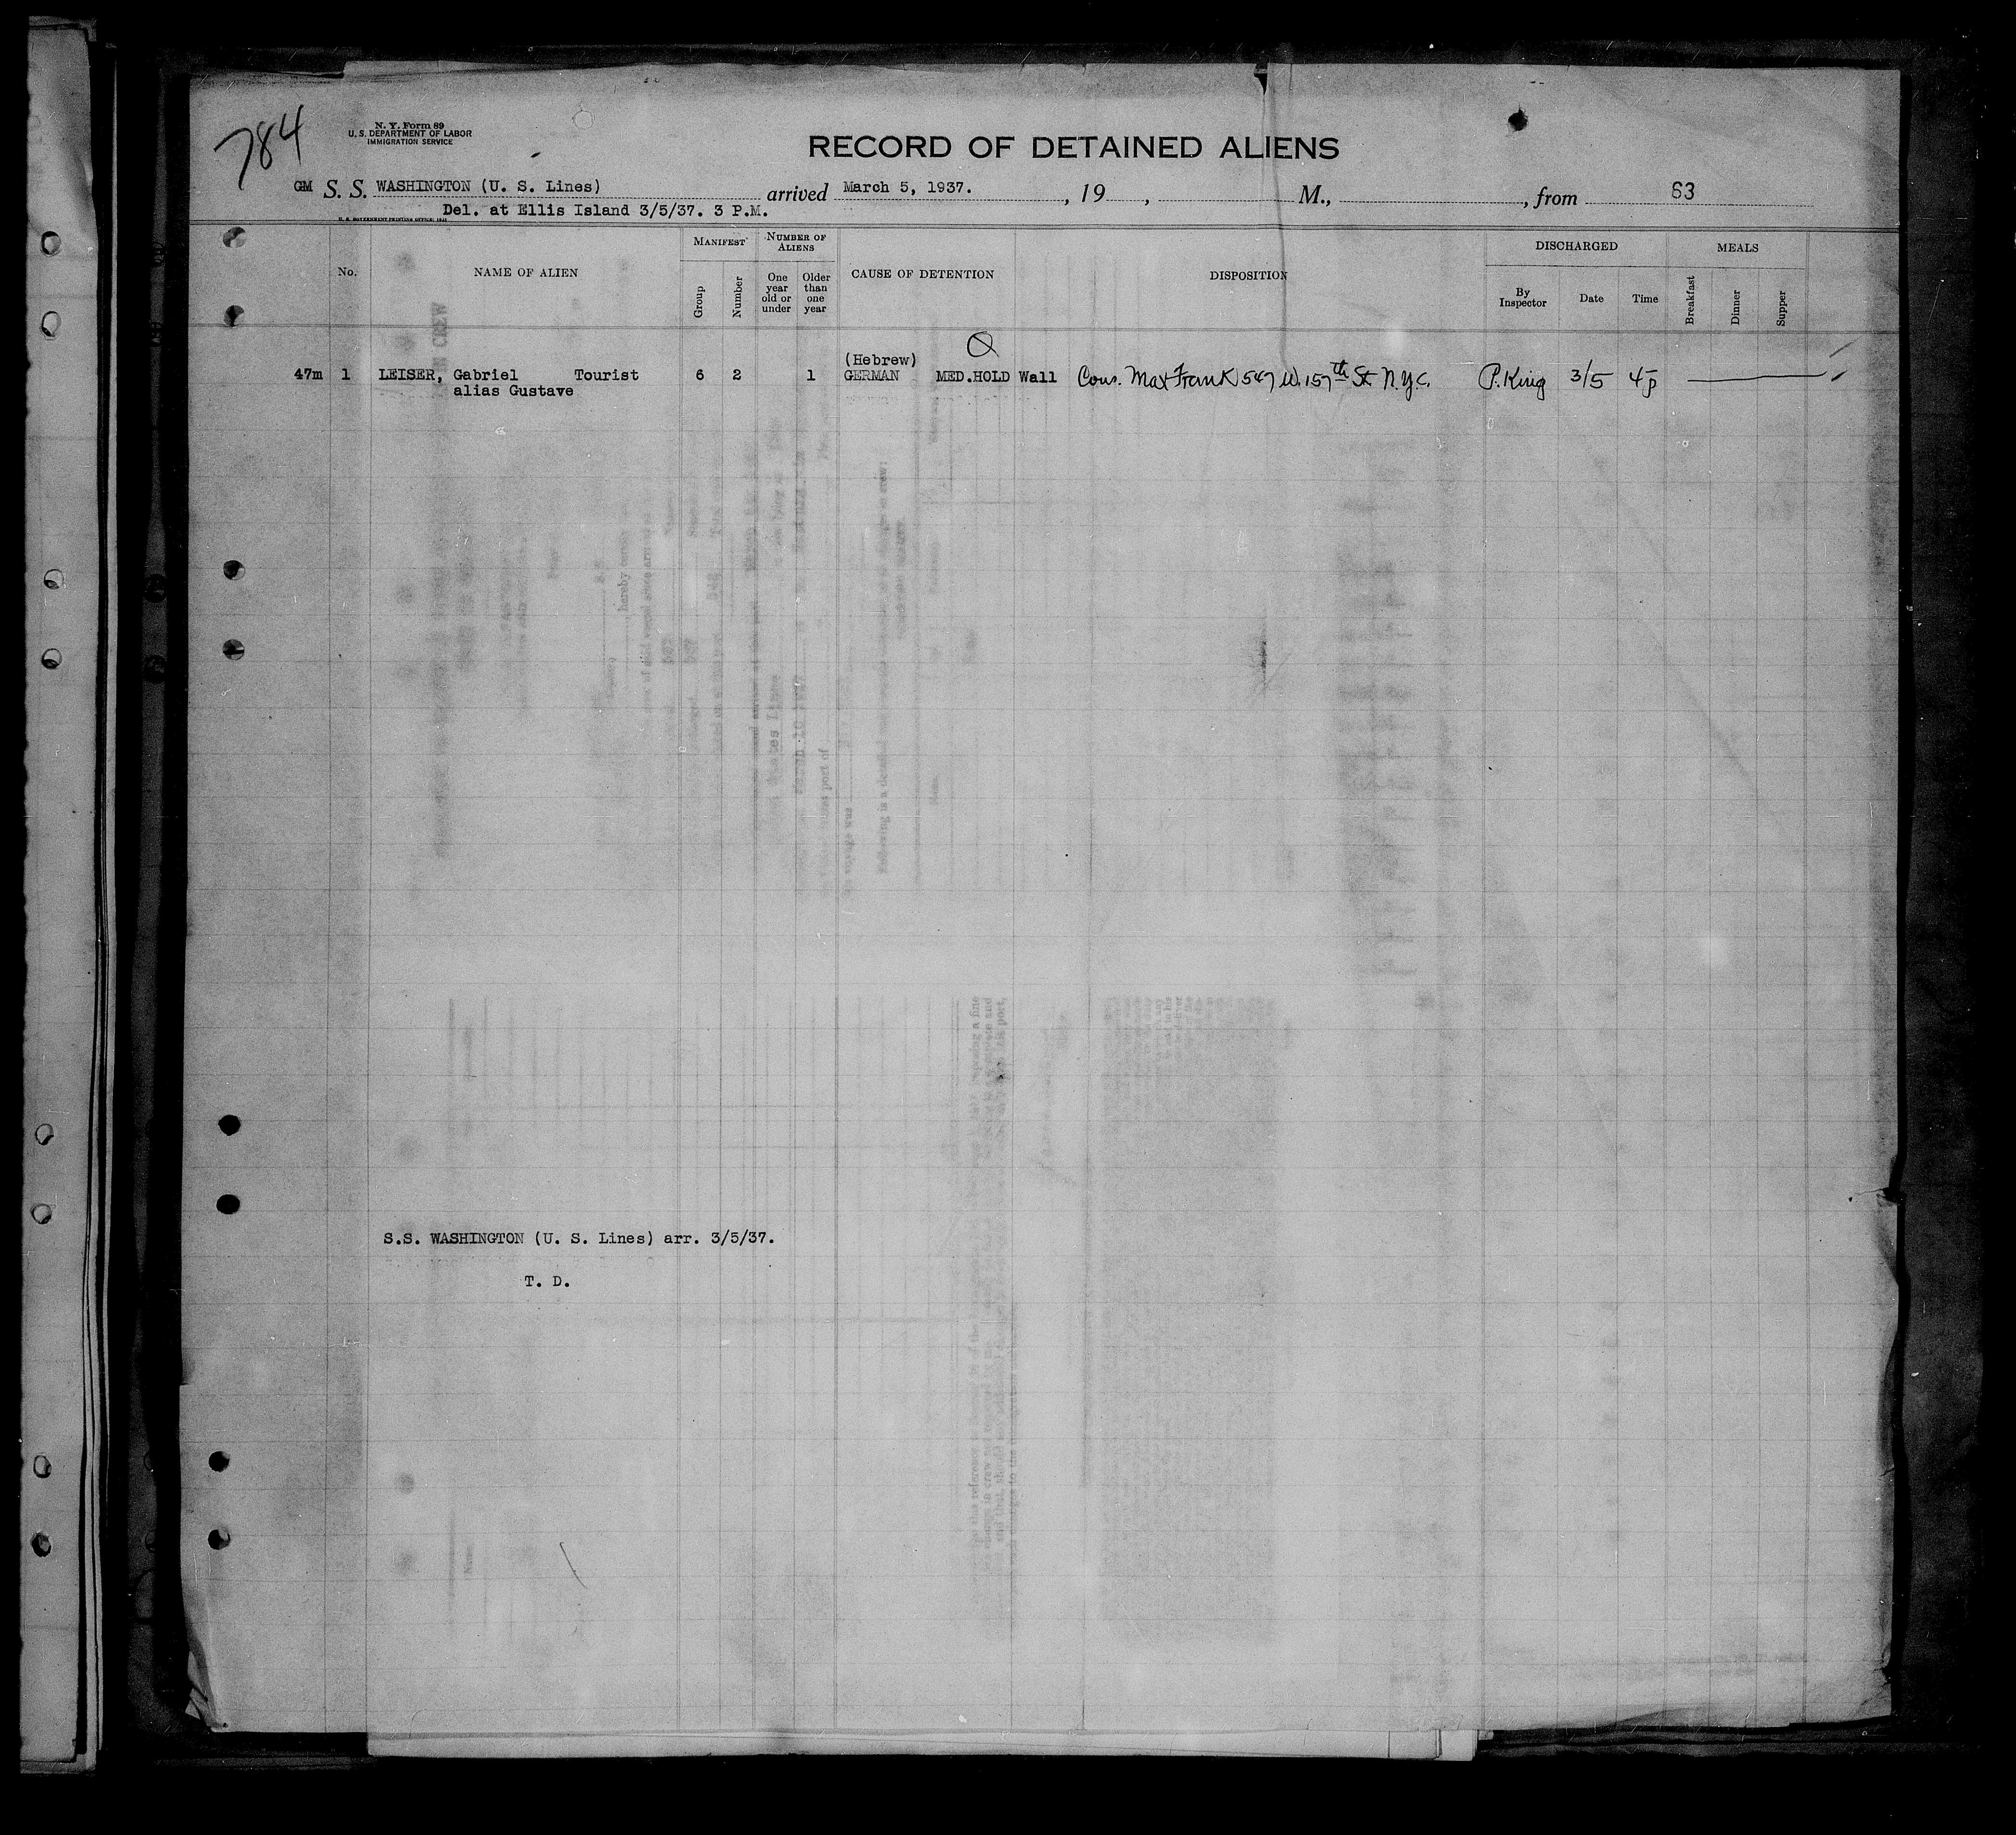 784
N. Y. Form 89
U. S. DEPARTMENT OF LABOR
IMMIGRATION SERVICE
RECORD OF DETAINED ALIENS
GM S. S. WASHINGTON (U. S. Lines) arrived March 5, 1937. , 19 , M., , from 63
Del. at Ellis Island 3/5/37. 3 P.M.
U. S. GOVERNMENT PRINTING OFFICE
No.
NAME OF ALIEN
MANIFEST
Group
Number
NUMBER OF ALIENS
One year old or under
Older than one year
CAUSE OF DETENTION
DISPOSITION
DISCHARGED
By Inspector
Date
Time
MEALS
Breakfast
Dinner
Supper
(Hebrew)
47m 1 LEISER, Gabriel Tourist 6 2 1 GERMAN MED.HOLD Wall Cous. Max Frank 547 W. 157th St. N.Y.C. P. King 3/5 4p
alias Gustave
S.S. WASHINGTON (U. S. Lines) arr. 3/5/37.
T. D.